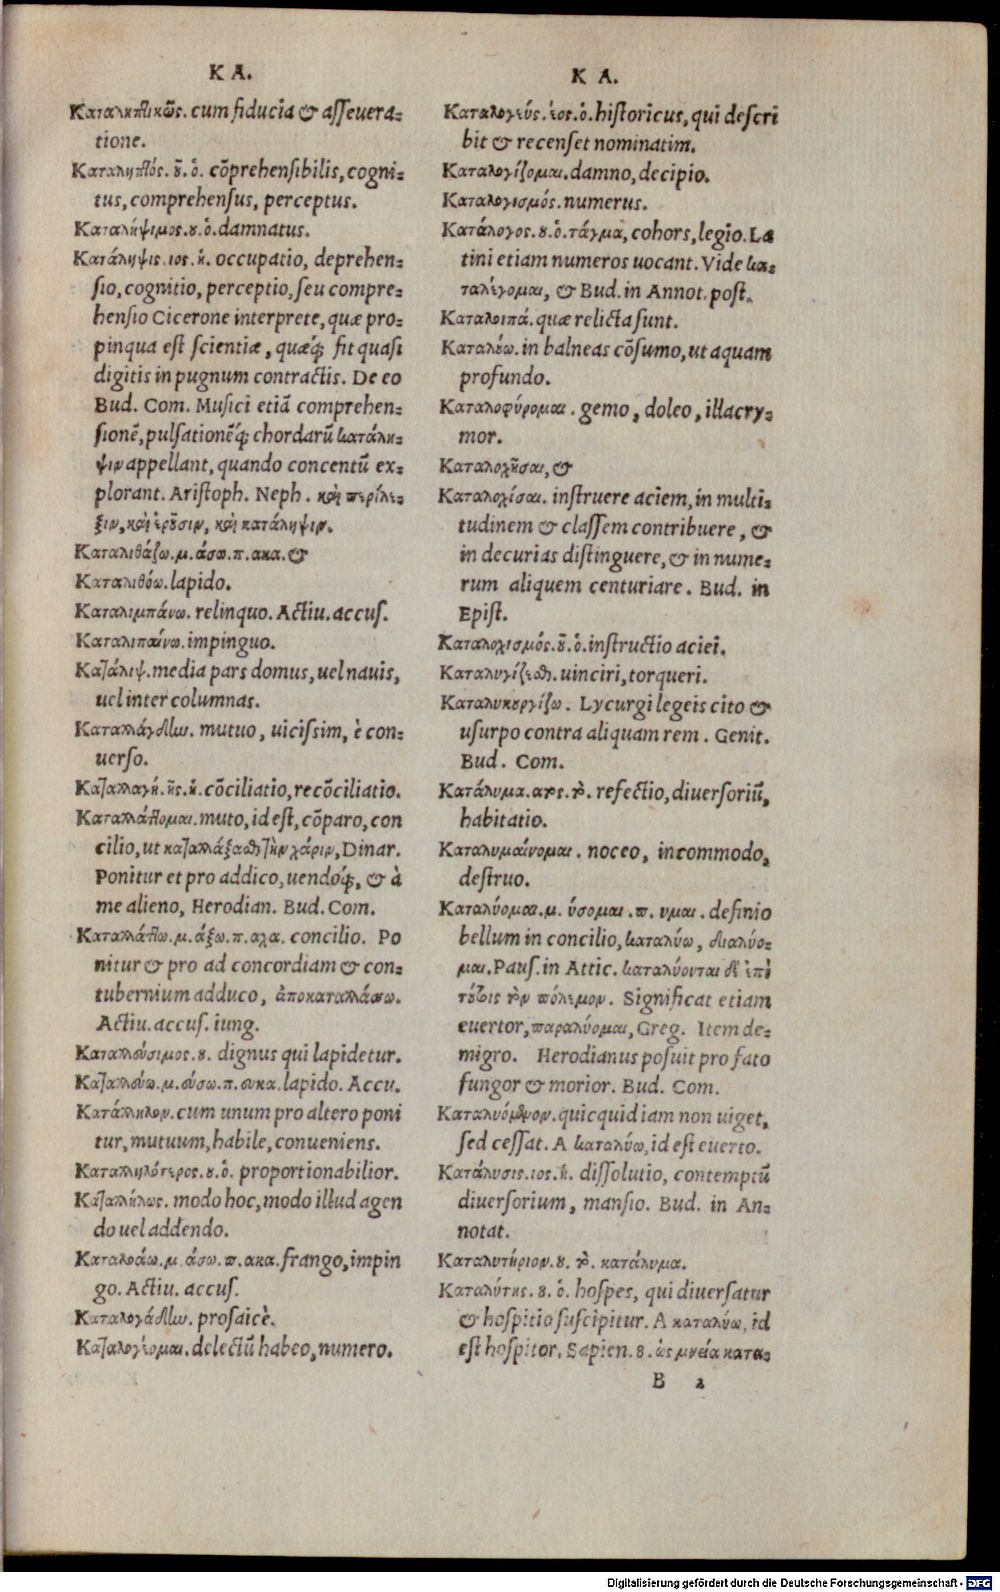 K A.
Καταληπτικῶς. cum fiducia & asseuera=
tione.
Καταληπτός. οῦ. ὁ. cõprehensibilis, cogni=
tus, comprehensus, perceptus.
Καταλήψιμος. ου. ὁ. damnatus.
Κατάληψις. ιος. ἡ. occupatio, deprehen=
sio, cognitio, perceptio, seu compre=
hensio Cicerone interprete, quæ pro=
pinqua est scientiæ, quæq́; fit quasi
digitis in pugnum contractis. De eo
Bud. Com. Musici etiã comprehen=
sionẽ, pulsationẽq́; chordarũ κατάλη=
ψιν appellant, quando concentũ ex=
plorant. Aristoph. Neph. καὶ περίλε=
ξιν, καὶ κροῦσιν, καὶ κατάληψιν.
Καταλιθάζω. μ. άσω. π. ακα. &
Καταλιθόω. lapido.
Καταλιμπάνω. relinquo. Actiu. accus.
Καταλιπαίνω. impinguo.
Κατάλιψ. media pars domus, uel nauis,
uel inter columnas.
Καταλλάγδην. mutuo, uicissim, è con=
uerso.
Καταλλαγή. ῆς. ἡ. cõciliatio, recõciliatio.
Καταλλάττομαι. muto, id est, cõparo, con
cilio, ut καταλλάξασθαι τὴν χάριν, Dinar.
Ponitur et pro addico, uendoq́;, & à
me alieno, Herodian. Bud. Com.
Καταλλάττω. μ. άξω. π. αχα. concilio. Po
nitur & pro ad concordiam & con=
tubernium adduco, ἀποκαταλλάσσω.
Actiu. accus. iung.
Καταλεύσιμος. ου. dignus qui lapidetur.
Καταλεύω. μ. εύσω. π. ευκα. lapido. Accu.
Κατάλληλον. cum unum pro altero poni
tur, mutuum, habile, conueniens.
Καταλληλότερος. ου. ὁ. proportionabilior.
Καταλλήλως. modo hoc, modo illud agen
do uel addendo.
Καταλοάω. μ. άσω. π. ακα. frango, impin
go. Actiu. accus.
Καταλογάδην. prosaicè.
Καταλογέομαι. delectũ habeo, numero.
K A.
Καταλογεύς. έος. ὁ. historicus, qui descri
bit & recenset nominatim.
Καταλογίζομαι. damno, decipio.
Καταλογισμός. numerus.
Κατάλογος. ου. ὁ. τάγμα, cohors, legio. La
tini etiam numeros uocant. Vide κα=
ταλέγομαι, & Bud. in Annot. post.
Καταλοιπά. quæ relicta sunt.
Καταλούω. in balneas cõsumo, ut aquam
profundo.
Καταλοφύρομαι. gemo, doleo, illacry=
mor.
Καταλοχῆσαι, &
Καταλοχίσαι. instruere aciem, in multi=
tudinem & classem contribuere, &
in decurias distinguere, & in nume=
rum aliquem centuriare. Bud. in
Epist.
Καταλοχισμός. οῦ. ὁ. instructio aciei.
Καταλυγίζεσθαι. uinciri, torqueri.
Καταλυκουργίζω. Lycurgi legeis cito &
usurpo contra aliquam rem. Genit.
Bud. Com.
Κατάλυμα. ατος. τὸ. refectio, diuersoriũ,
habitatio.
Καταλυμαίνομαι. noceo, incommodo,
destruo.
Καταλύομαι. μ. ύσομαι. π. υμαι. definio
bellum in concilio, καταλύω, διαλύο=
μαι. Paus. in Attic. καταλύονται δὲ ἐπὶ
τούτοις τὸν πόλεμον. Significat etiam
euertor, παραλύομαι, Greg. Item de=
migro. Herodianus posuit pro fato
fungor & morior. Bud. Com.
Καταλυόμενον. quicquid iam non uiget,
sed cessat. A καταλύω, id est euerto.
Κατάλυσις. ιος. ἡ. dissolutio, contemptũ
diuersorium, mansio. Bud. in An=
notat.
Καταλυτήριον. ου. τὸ. κατάλυμα.
Καταλύτης. ου. ὁ. hospes, qui diuersatur
& hospitio suscipitur. A καταλύω, id
est hospitor. Sapien. ε. ὡς μνεία κατα=
B 2
Digitalisierung gefördert durch die Deutsche Forschungsgemeinschaft - DFG